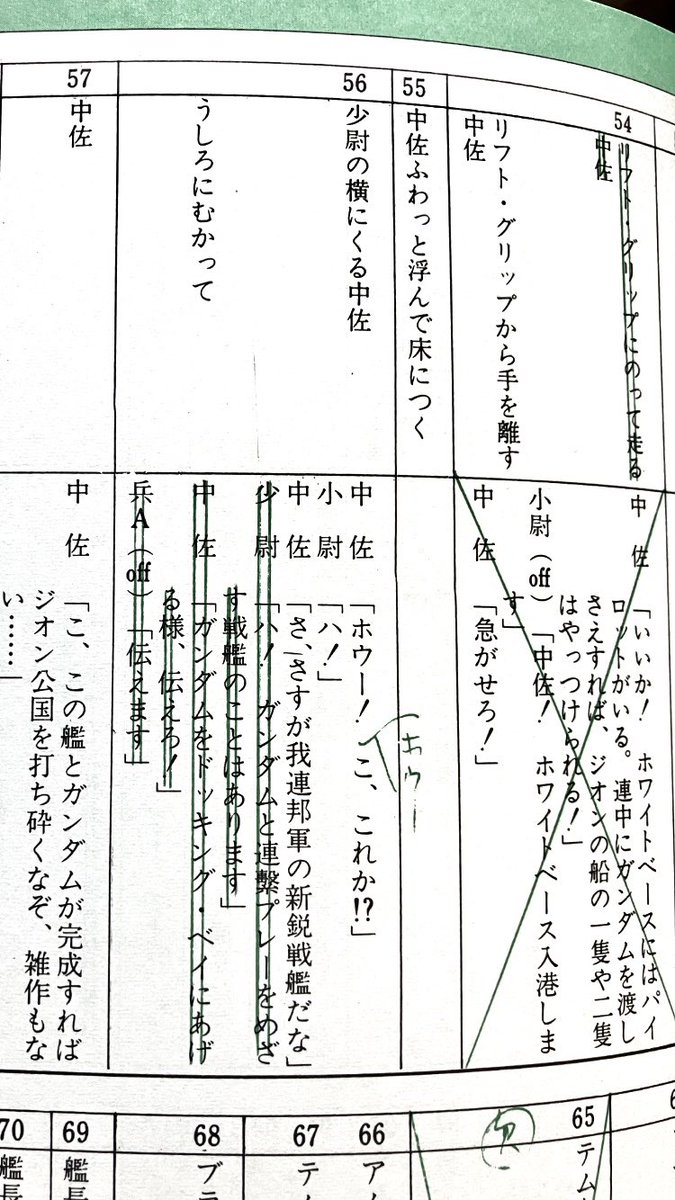 54
リフト・グリップにのって走る
中佐
リフト・グリップから手を離す
中佐
中　佐　「いいか！　ホワイトベースにはパイ
ロットがいる。連中にガンダムを渡し
さえすれば、ジオンの船の一隻や二隻
はやっつけられる！」
小尉（off）「中佐！　ホワイトベース入港しま
す」
中　佐　「急がせろ！」
55
中佐ふわっと浮んで床につく
56
少尉の横にくる中佐
うしろにむかって
ホゥー
中　佐　「ホウー！　こ、これか!?」
小　尉　「ハ！」
中　佐　「さ、さすが我連邦軍の新鋭戦艦だな」
少　尉　「ハ！　ガンダムと連繫プレーをめざ
す戦艦のことはあります」
中　佐　「ガンダムをドッキング・ベイにあげ
る様、伝えろ！」
兵A（off）「伝えます」
57
中佐
中　佐　「こ、この艦とガンダムが完成すれば
ジオン公国を打ち砕くなぞ、雑作もな
い……」
65
テム
欠
66
アム
67
テ
68
ブ
69
艦長
70
艦長